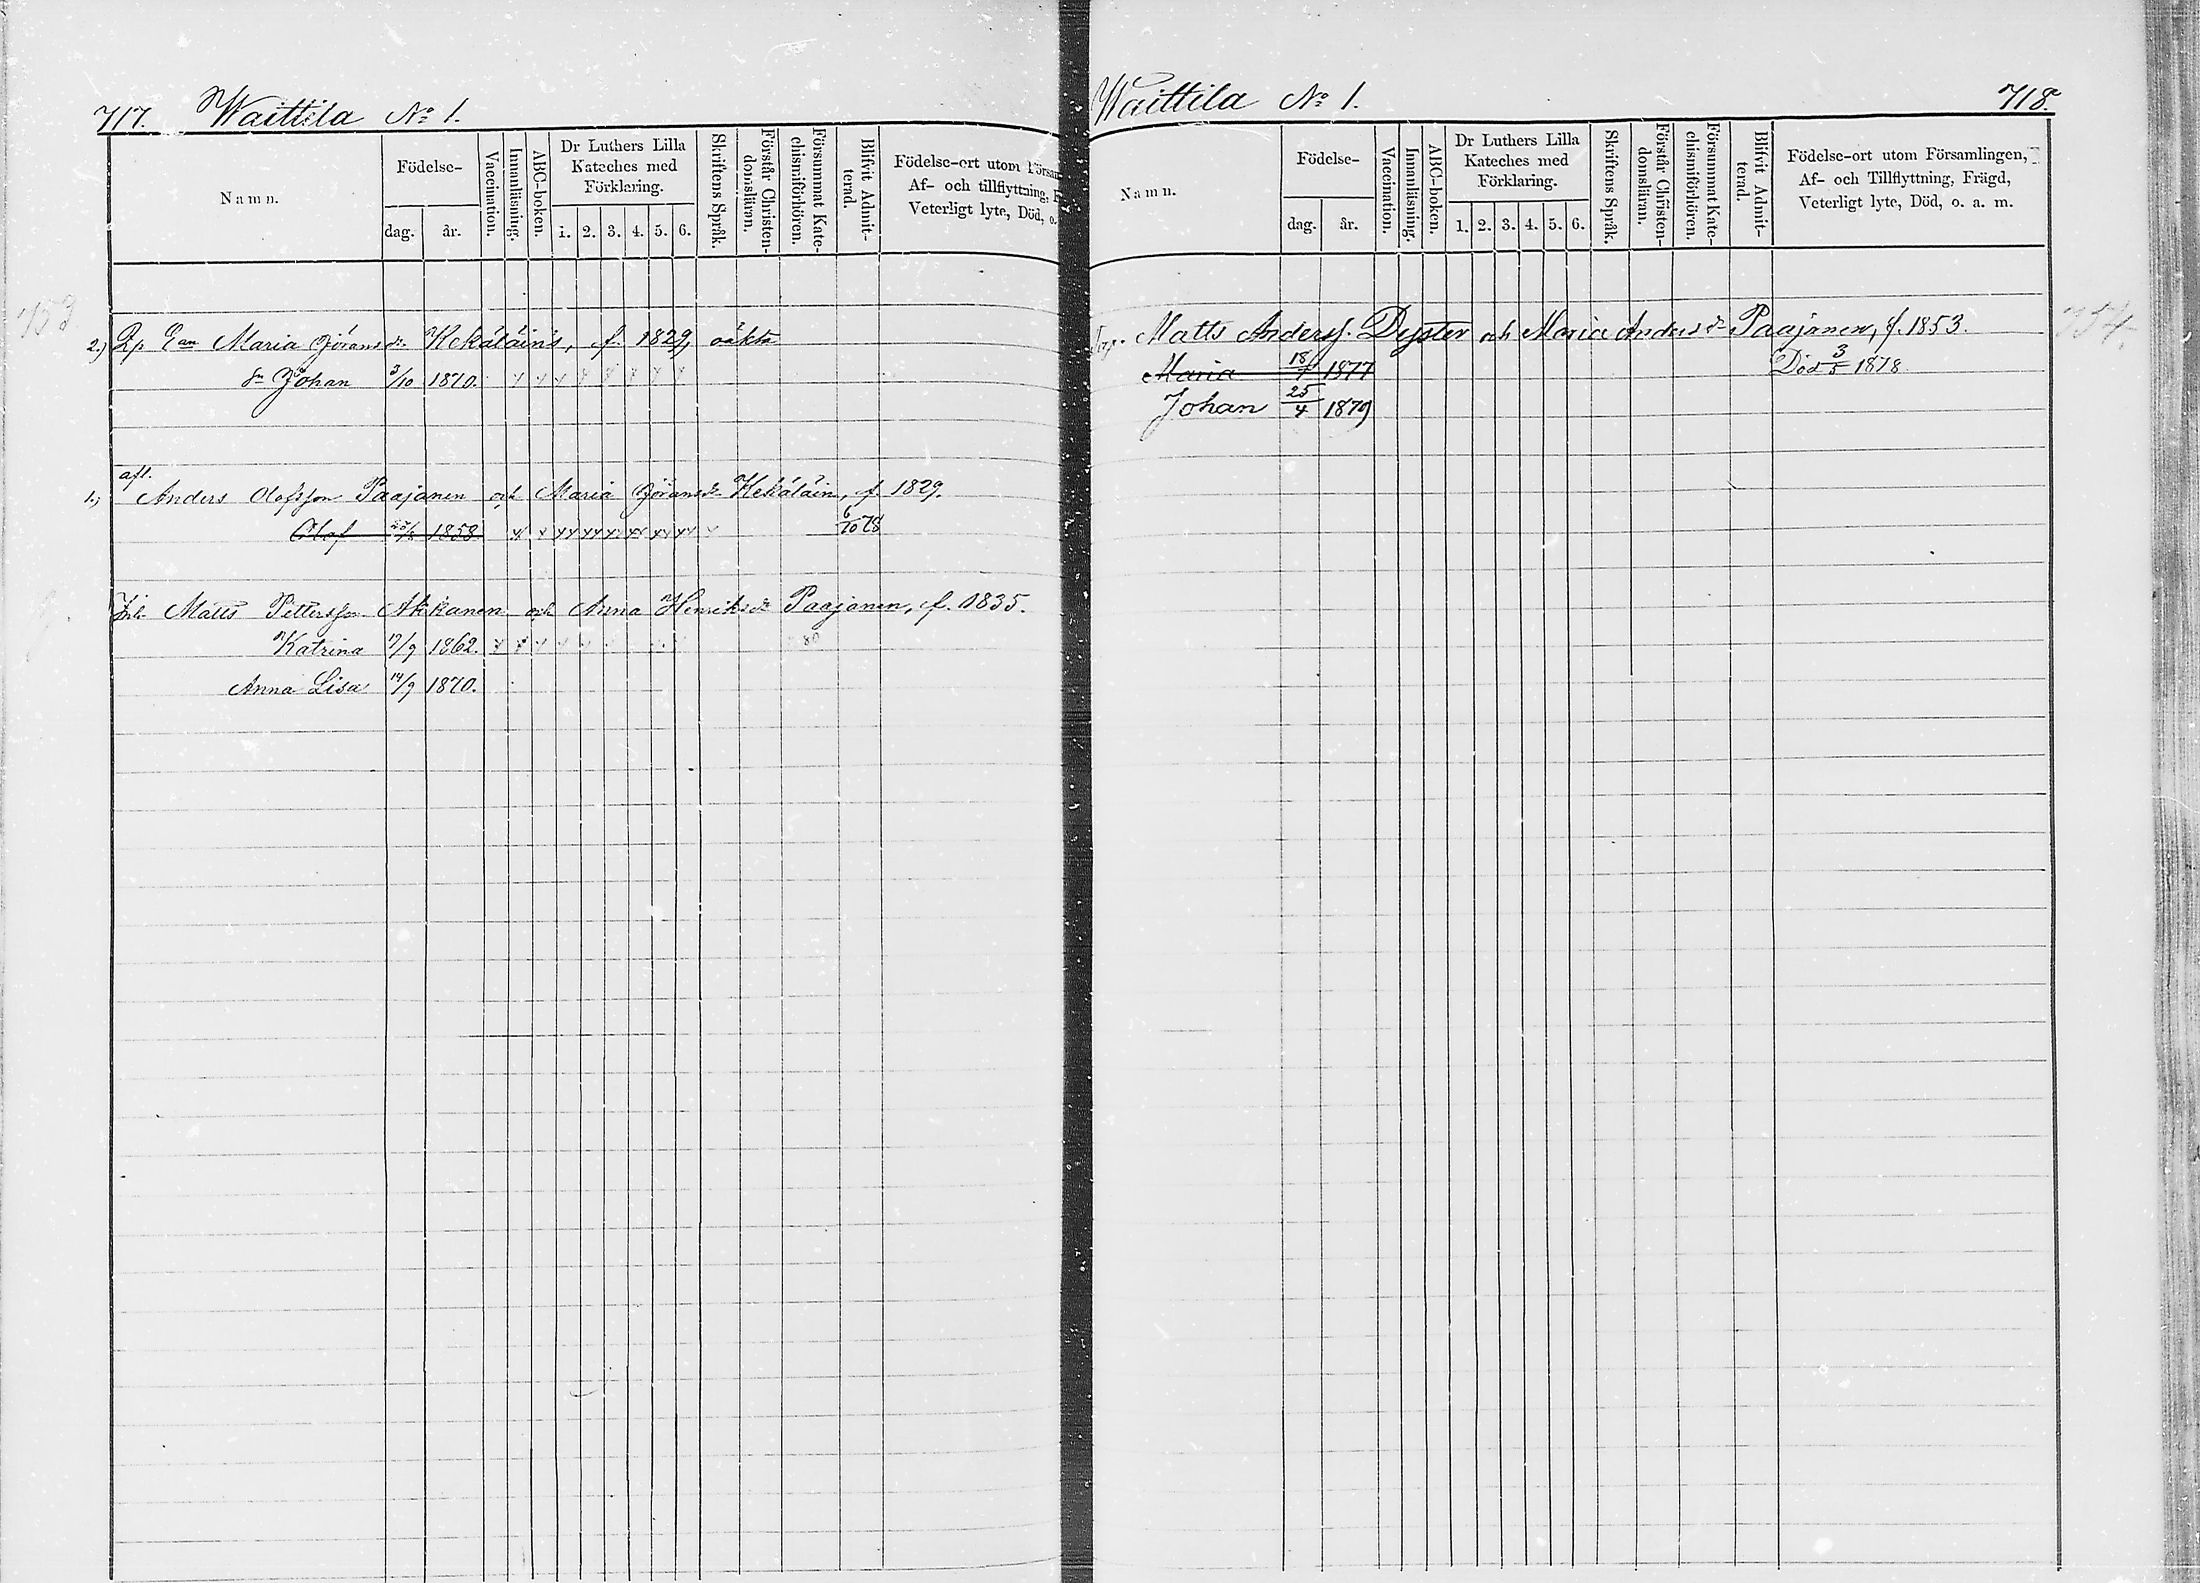 717. Waittila No 1.
Namn.
Födelse-
dag.
år.
Vaccination.
Innanläsning.
ABC-boken.
Dr Luthers Lilla
Kateches med
Förklaring.
1. 2. 3. 4. 5. 6.
Skriftens Språk.
Förstår Christen-
domsläran.
Försummat Kate-
chismiförhören.
Blifvit Admit-
terad.
Födelse-ort utom
Af- och tillflyttning,
Veterligt lyte, Död, o.
2.) Maria Görans dr Kekäläin's, f. 1829, oäkta
Sn Johan 3/10 1870.
afl.
1.) Anders Olofsson Paajanen och Maria Görans dr Kekäläin, f. 1829.
Olof 1858. 6/10 78
Inh Matts Pettersson Akkanen och Anna Henriks dr Paajanen, f. 1835.
Katrina 7/9 1862. 80
Anna Lisa 14/9 1870.
Waittila No 1. 718.
Namn.
Födelse-
dag.
år.
Vaccination.
Innanläsning.
ABC-boken.
Dr Luthers Lilla
Kateches med
Förklaring.
1. 2. 3. 4. 5. 6.
Skriftens Språk.
Förstår Christen-
domsläran.
Försummat Kate-
chismiförhören.
Blifvit Admit-
terad.
Födelse-ort utom Församlingen,
Af- och Tillflyttning, Frägd,
Veterligt lyte, Död, o. a. m.
Matts Anderss. Dyster och Maria Anders dr Paajanen, f. 1853.
Maria 18/1 1877 Död 3/5 1878.
Johan 25/4 1879
754.